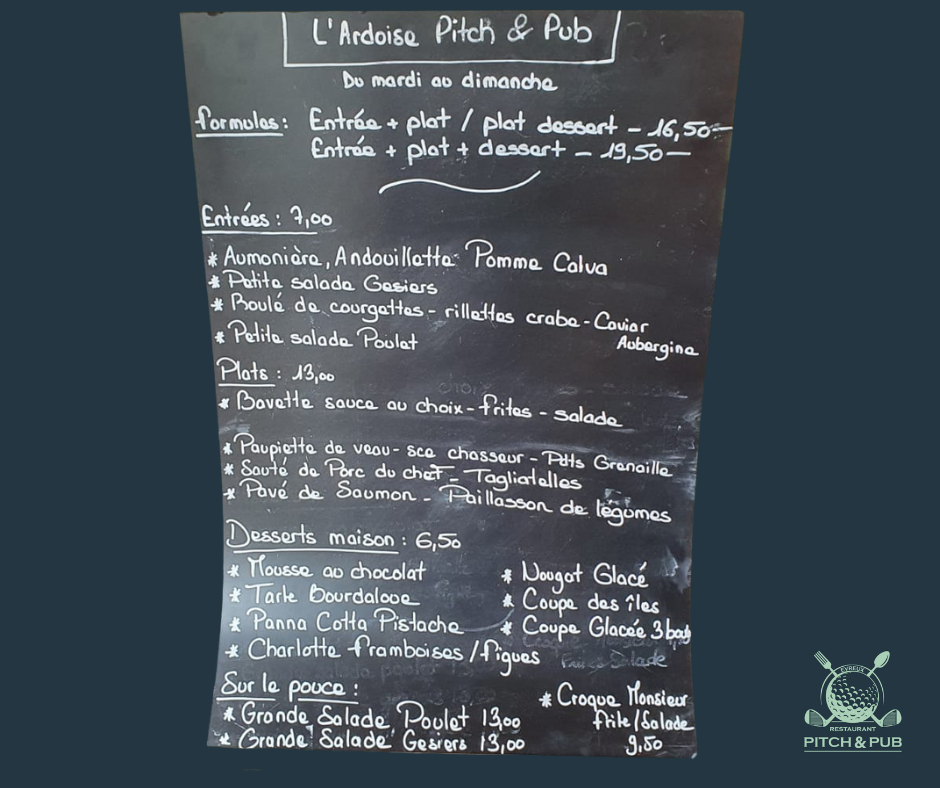 L'Ardoise Pitch & Pub
Du mardi au dimanche
formules: Entrée + plat / plat dessert - 16,50-
Entrée + plat + dessert - 19,50-
Entrées : 7,00
* Aumonière, Andouillette Pomme Calva
* Petite salade Gesiers
* Roulé de courgettes - rillettes crabe - Caviar
Aubergine
* Petite salade Poulet
Plats : 13,00
* Bavette sauce au choix - frites - salade
* Paupiette de veau - sce chasseur - Pdts Grenaille
* Sauté de Porc du chef - Tagliatelles
* Pavé de Saumon - Paillasson de légumes
Desserts maison : 6,50
* Mousse au chocolat
* Tarte Bourdaloue
* Panna Cotta Pistache
* Charlotte framboises / figues
* Nougat Glacé
* Coupe des îles
* Coupe Glacée 3 boules
Sur le pouce :
* Grande Salade Poulet 13,00
* Grande Salade Gesiers 13,00
* Croque Monsieur
frite/Salade
9,50
EVREUX
RESTAURANT
PITCH & PUB